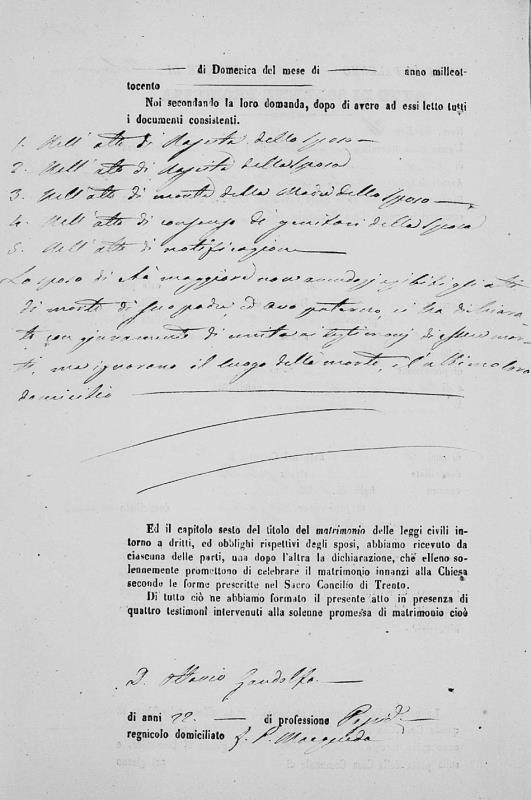 di Domenica del mese di anno milleot-
tocento
Noi secondando la loro domanda, dopo di avere ad essi letto tutti
i documenti consistenti.
1. Nell' atto di Nascita dello sposo
2. Nell' atto di Nascita della sposa
3. Nell' atto di morte della Madre dello sposo
4. Nell' atto di consenso de genitori della sposa
5. Nell' atto di notificazione
Lo sposo di età maggiore non
di morte di suo padre, ed avo paterno, ci ha dichiara
to con giuramento di unita ai testimonj di essere mor
ti, ma ignorano il luogo della morte, e l'ultimo loro
domicilio
Ed il capitolo sesto del titolo del matrimonio delle leggi civili in-
torno a dritti, ed obblighi rispettivi degli sposi, abbiamo ricevuto da
ciascuna delle parti, una dopo l'altra la dichiarazione, che elleno so-
lennemente promettono di celebrare il matrimonio innanzi alla Chiesa
seconde le forme prescritte nel Sacro Concilio di Trento.
Di tutto ciò ne abbiamo formato il presente atto in presenza di
quattro testimoni intervenuti alla solenne promessa di matrimonio cioè
D. Gandolfo
di anni 22. di professione
regnicolo domiciliato